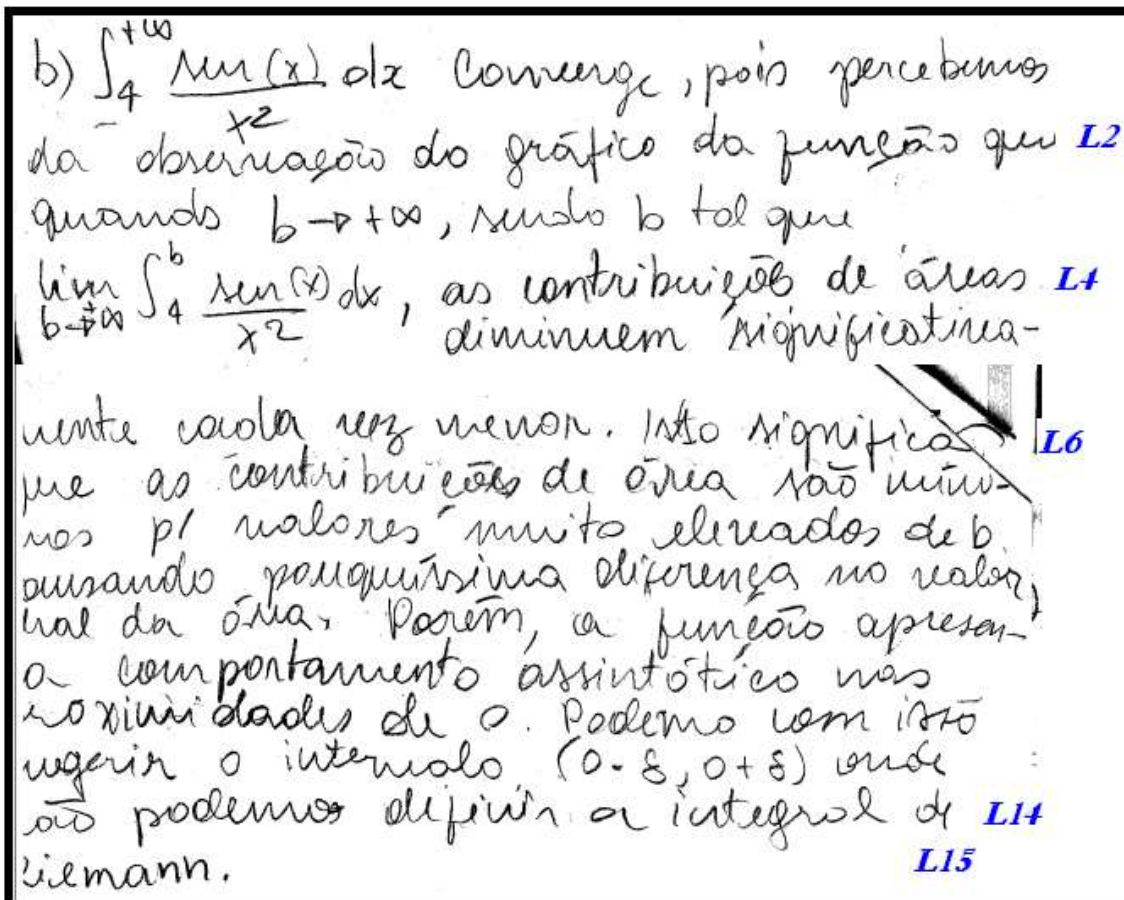 b) ∫₄^{+∞} sen(x)/x² dx Converge, pois percebemos
da observação do gráfico da função que L2
quando b→+∞, sendo b tal que
lim b→+∞ ∫₄^b sen(x)/x² dx, as contribuições de áreas L4
diminuem significativa-
mente cada vez menor. Isto significa L6
que as contribuições de área são míni-
mas p/ valores muito elevados de b
ausando pouquíssima diferença no valor
da área. Porém, a função apresen-
a comportamento assintótico nas
roximidades de 0. Podemo com isto
ugerir o intervalo (0-δ, 0+δ) onde
ão podemos definir a integral de L14
iemann. L15